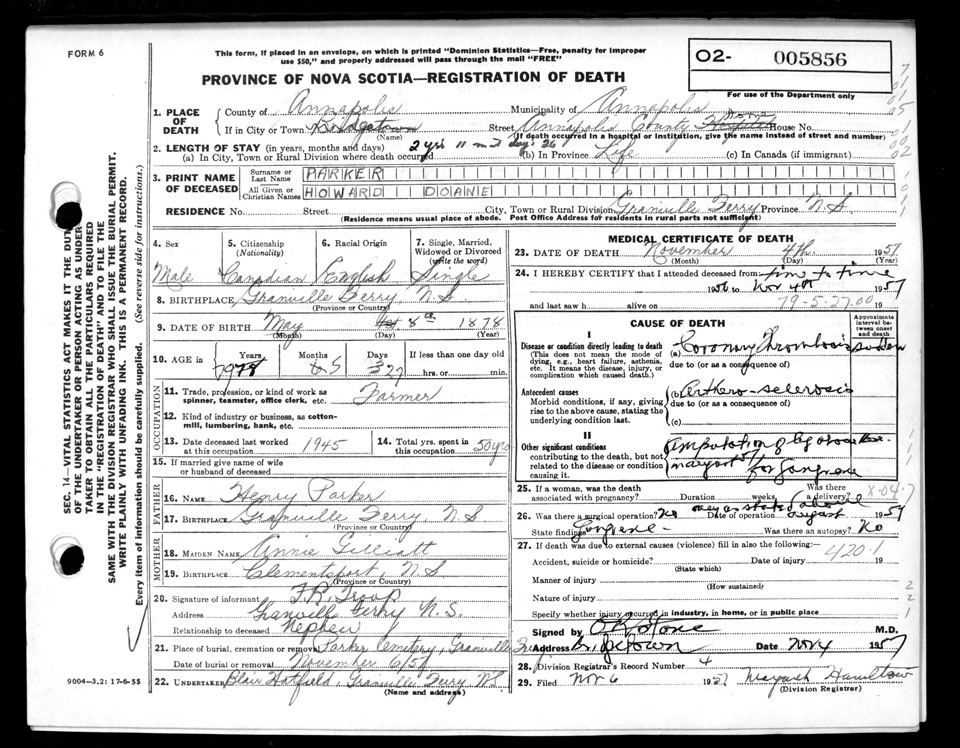 FORM 6
This form, if placed in an envelope, on which is printed "Dominion Statistics—Free, penalty for improper use $50," and properly addressed will pass through the mail "FREE"
O2- 005856
For use of the Department only
PROVINCE OF NOVA SCOTIA—REGISTRATION OF DEATH
1. PLACE OF DEATH
County of Annapolis Municipality of Annapolis
If in City or Town Bridgetown (Name) Street Annapolis County Home Hospital House No.
(If death occurred in a hospital or institution, give the name instead of street and number)
2. LENGTH OF STAY (in years, months and days)
(a) In City, Town or Rural Division where death occurred 2 yrs 11 m days 26 (b) In Province Life (c) In Canada (if immigrant)
3. PRINT NAME OF DECEASED
Surname or Last Name PARKER
All Given or Christian Names HOWARD DOANE
RESIDENCE No. Street City, Town or Rural Division Granville Ferry Province N.S.
(Residence means usual place of abode. Post Office Address for residents in rural parts not sufficient)
4. Sex Male
5. Citizenship (Nationality) Canadian
6. Racial Origin English
7. Single, Married, Widowed or Divorced (write the word) Single
8. BIRTHPLACE Granville Ferry N.S.
(Province or Country)
9. DATE OF BIRTH May 8th 1878
(Month) (Day) (Year)
10. AGE in Years 79 Months 5 Days 27 If less than one day old hrs. or min.
OCCUPATION
11. Trade, profession, or kind of work as spinner, teamster, office clerk, etc. Farmer
12. Kind of industry or business, as cotton-mill, lumbering, bank, etc.
13. Date deceased last worked at this occupation 1945
14. Total yrs. spent in this occupation 50 yrs
15. If married give name of wife or husband of deceased
FATHER
16. NAME Henry Parker
17. BIRTHPLACE Granville Ferry, N.S
(Province or Country)
MOTHER
18. MAIDEN NAME Annie Gilliatt
19. BIRTHPLACE Clementsport, N.S
(Province or Country)
20. Signature of informant F.R. Troop
Address Granville Ferry N.S.
Relationship to deceased Nephew
21. Place of burial, cremation or removal Parker Cemetery, Granville
Date of burial or removal November 6/57
22. UNDERTAKER Blair Hatfield, Granville Ferry NS
(Name and address)
MEDICAL CERTIFICATE OF DEATH
23. DATE OF DEATH November 4th. 1957
(Month) (Day) (Year)
24. I HEREBY CERTIFY that I attended deceased from time to time
1956 to Nov 4th 1957
and last saw h alive on 19
79-5-27.00
CAUSE OF DEATH
Approximate interval between onset and death
I
Disease or condition directly leading to death
(This does not mean the mode of dying, e.g., heart failure, asthenia, etc. It means the disease, injury, or complication which caused death.)
(a) Coronary Thrombosis sudden
due to (or as a consequence of)
Antecedent causes
Morbid conditions, if any, giving rise to the above cause, stating the underlying condition last.
(b) Arterio-sclerosis
due to (or as a consequence of)
(c)
II
Other significant conditions
contributing to the death, but not related to the disease or condition causing it.
amputation of leg above knee
for gangrene
25. If a woman, was the death associated with pregnancy? Duration weeks. Was there a delivery?
X-04-7
26. Was there a surgical operation? No yes as stated above Date of operation August 1957
State findings Gangrene Was there an autopsy? No
27. If death was due to external causes (violence) fill in also the following:—
420.1
Accident, suicide or homicide? Date of injury 19
(State which)
Manner of injury
(How sustained)
Nature of injury
Specify whether injury occurred in industry, in home, or in public place
Signed by M.D.
Bridgetown Date Nov 4 1957
28. Division Registrar's Record Number 4
29. Filed Nov 6 1957 Hamilton
(Division Registrar)
SEC. 14—VITAL STATISTICS ACT MAKES IT THE DUTY OF THE UNDERTAKER OR PERSON ACTING AS UNDERTAKER TO OBTAIN ALL THE PARTICULARS REQUIRED IN THE "REGISTRATION OF DEATH" AND TO FILE THE SAME WITH THE DIVISION REGISTRAR WHO SHALL ISSUE THE BURIAL PERMIT.
WRITE PLAINLY WITH UNFADING INK. THIS IS A PERMANENT RECORD.
Every item of information should be carefully supplied. (See reverse side for instructions.)
9004—3.2: 17-6-55